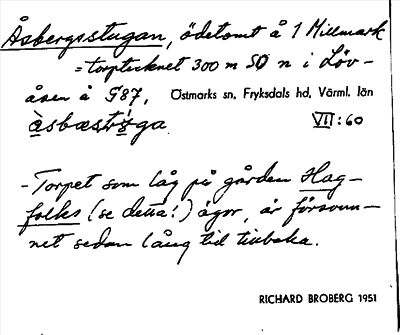 Åsbergsstugan, ödetomt å 1 Millmark
= torptecknet 300 m SO n i Löv-
åsen å G87, Östmarks sn, Fryksdals hd, Värml. län
àsbæstǿga VII:60
- Torpet som låg på gården Hag-
folks (se detta!) ägor, är försvun-
net sedan lång tid tillbaka.
RICHARD BROBERG 1951